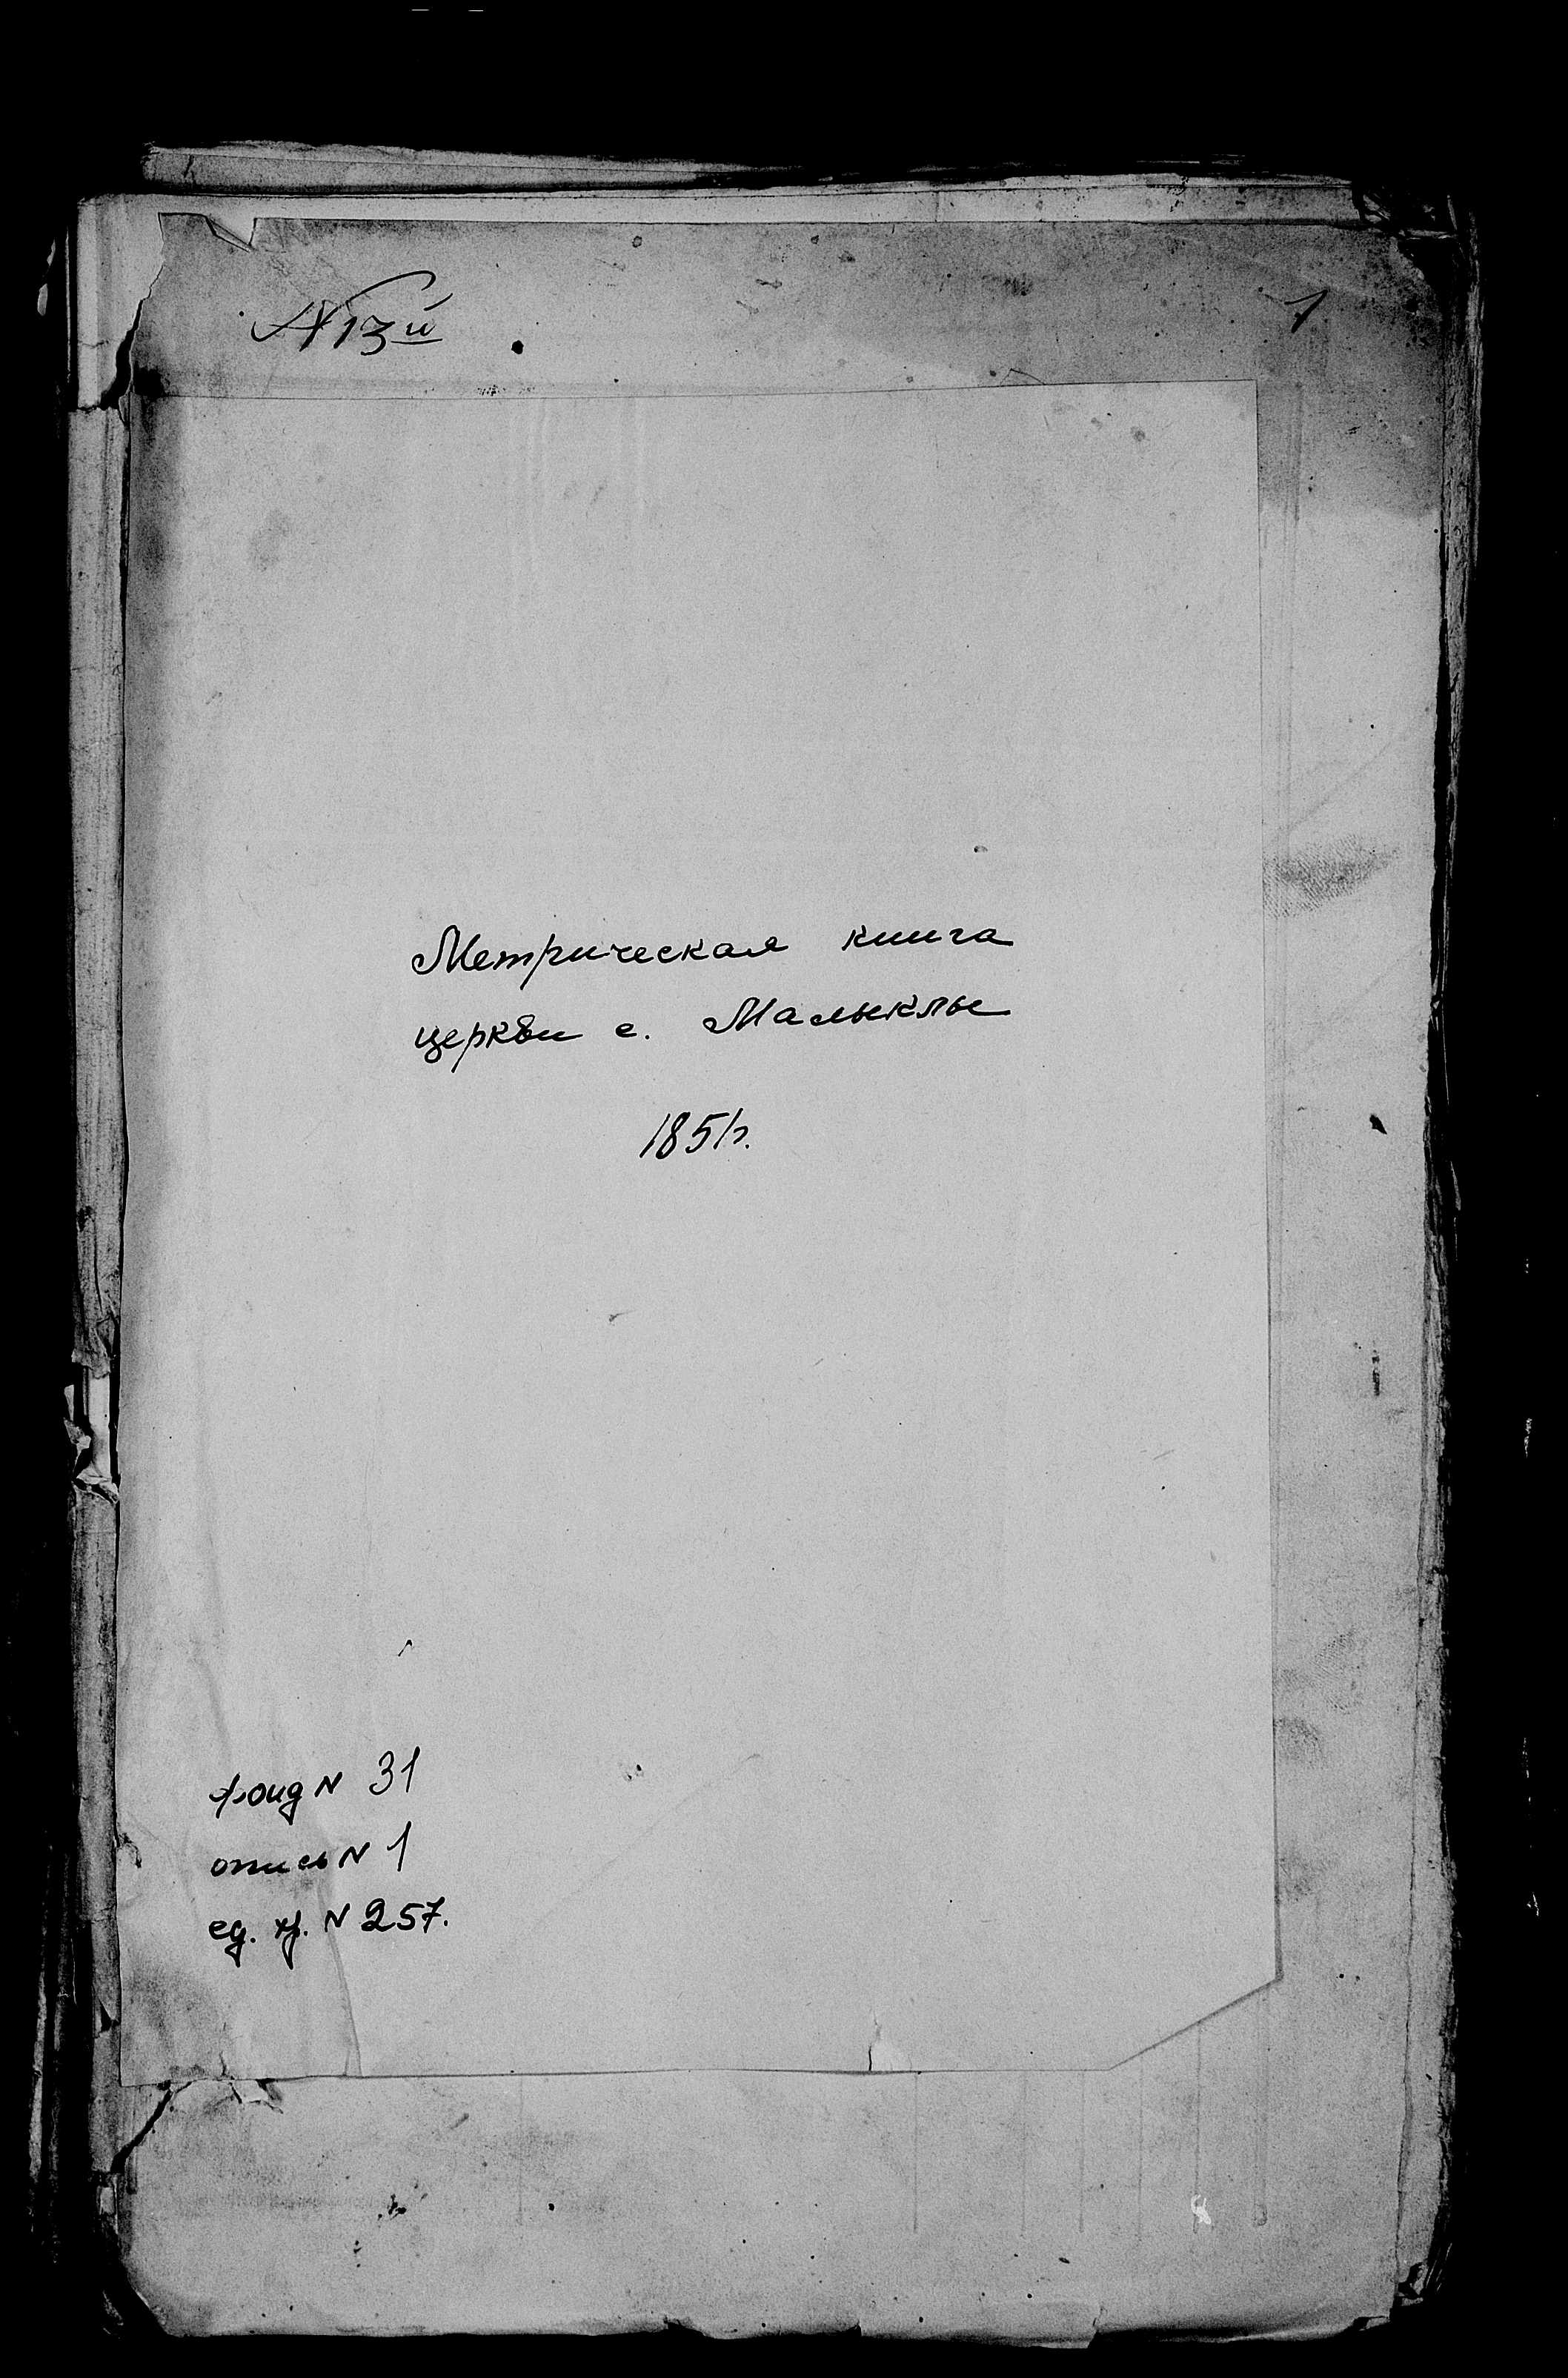 № 13й
1
Метрическая книга
церкви с. Малыклы
1851г.
фонд № 31
опись № 1
ед. хр. № 257.